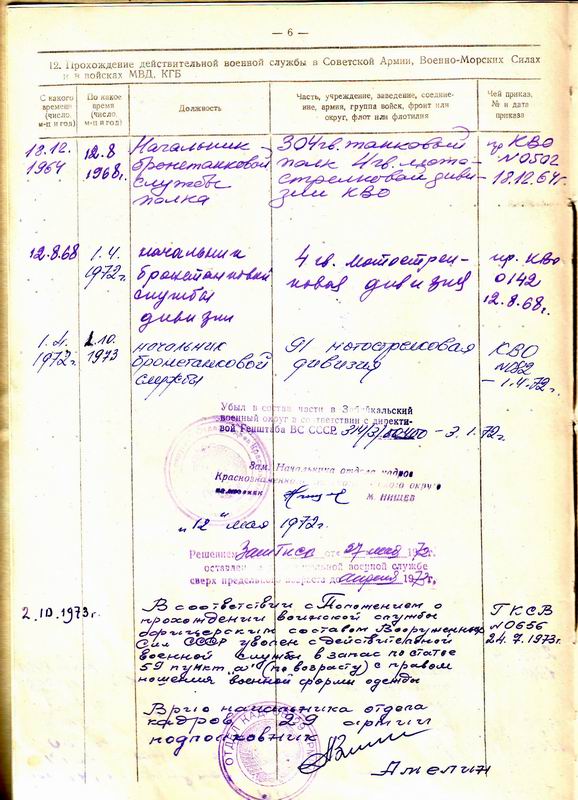 — 6 —
12. Прохождение действительной военной службы в Советской Армии, Военно-Морских Силах
и в войсках МВД, КГБ
С какого
времени
(число,
м-ц и год)
По какое
время
(число,
м-ц и год)
Должность
Часть, учреждение, заведение, соедине-
ние, армия, группа войск, фронт или
округ, флот или флотилия
Чей приказ,
№ и дата
приказа
18.12.
1964
12.8
1968г.
Начальник
бронетанковой
службы
полка
304 гв. танковый
полк 4 гв. мото-
стрелковой диви-
зии КВО
пр КВО
№0502
18.12.64г.
12.8.68
1.4.
1972г.
начальник
бронетанковой
службы
дивизии
4 гв. мотострел-
ковая дивизия
пр. КВО
0142
12.8.68г.
1.4.
1972г.
1.10.
1973
начальник
бронетанковой
службы
91 мотострелковая
дивизия
КВО
№052
– 1.4.72г.
Убыл в состав части в Забайкальский
военный округ в соответствии с директи-
вой Генштаба ВС СССР 314/3/ – 3.1.72г.
Зам. Начальника отдела кадров
Краснознаменного округа
полковник М. НИЩЕВ
„12" мая 1972г.
Решением от 27 мая 197
оставлен военной службе
сверх предельного возраста до апреля 197 г.
2.10.1973г.
В соответствии с Положением о
прохождении воинской службы
офицерским составом Вооруженных
Сил СССР уволен с действительной
военной службы в запас по статье
59 пункт „а" (по возрасту) с правом
ношения военной формы одежды
ГКСВ
№0656
24.7.1973г.
Врио начальника отдела
кадров 29 армии
подполковник
Амелин
ОТДЕЛ КАДРОВ